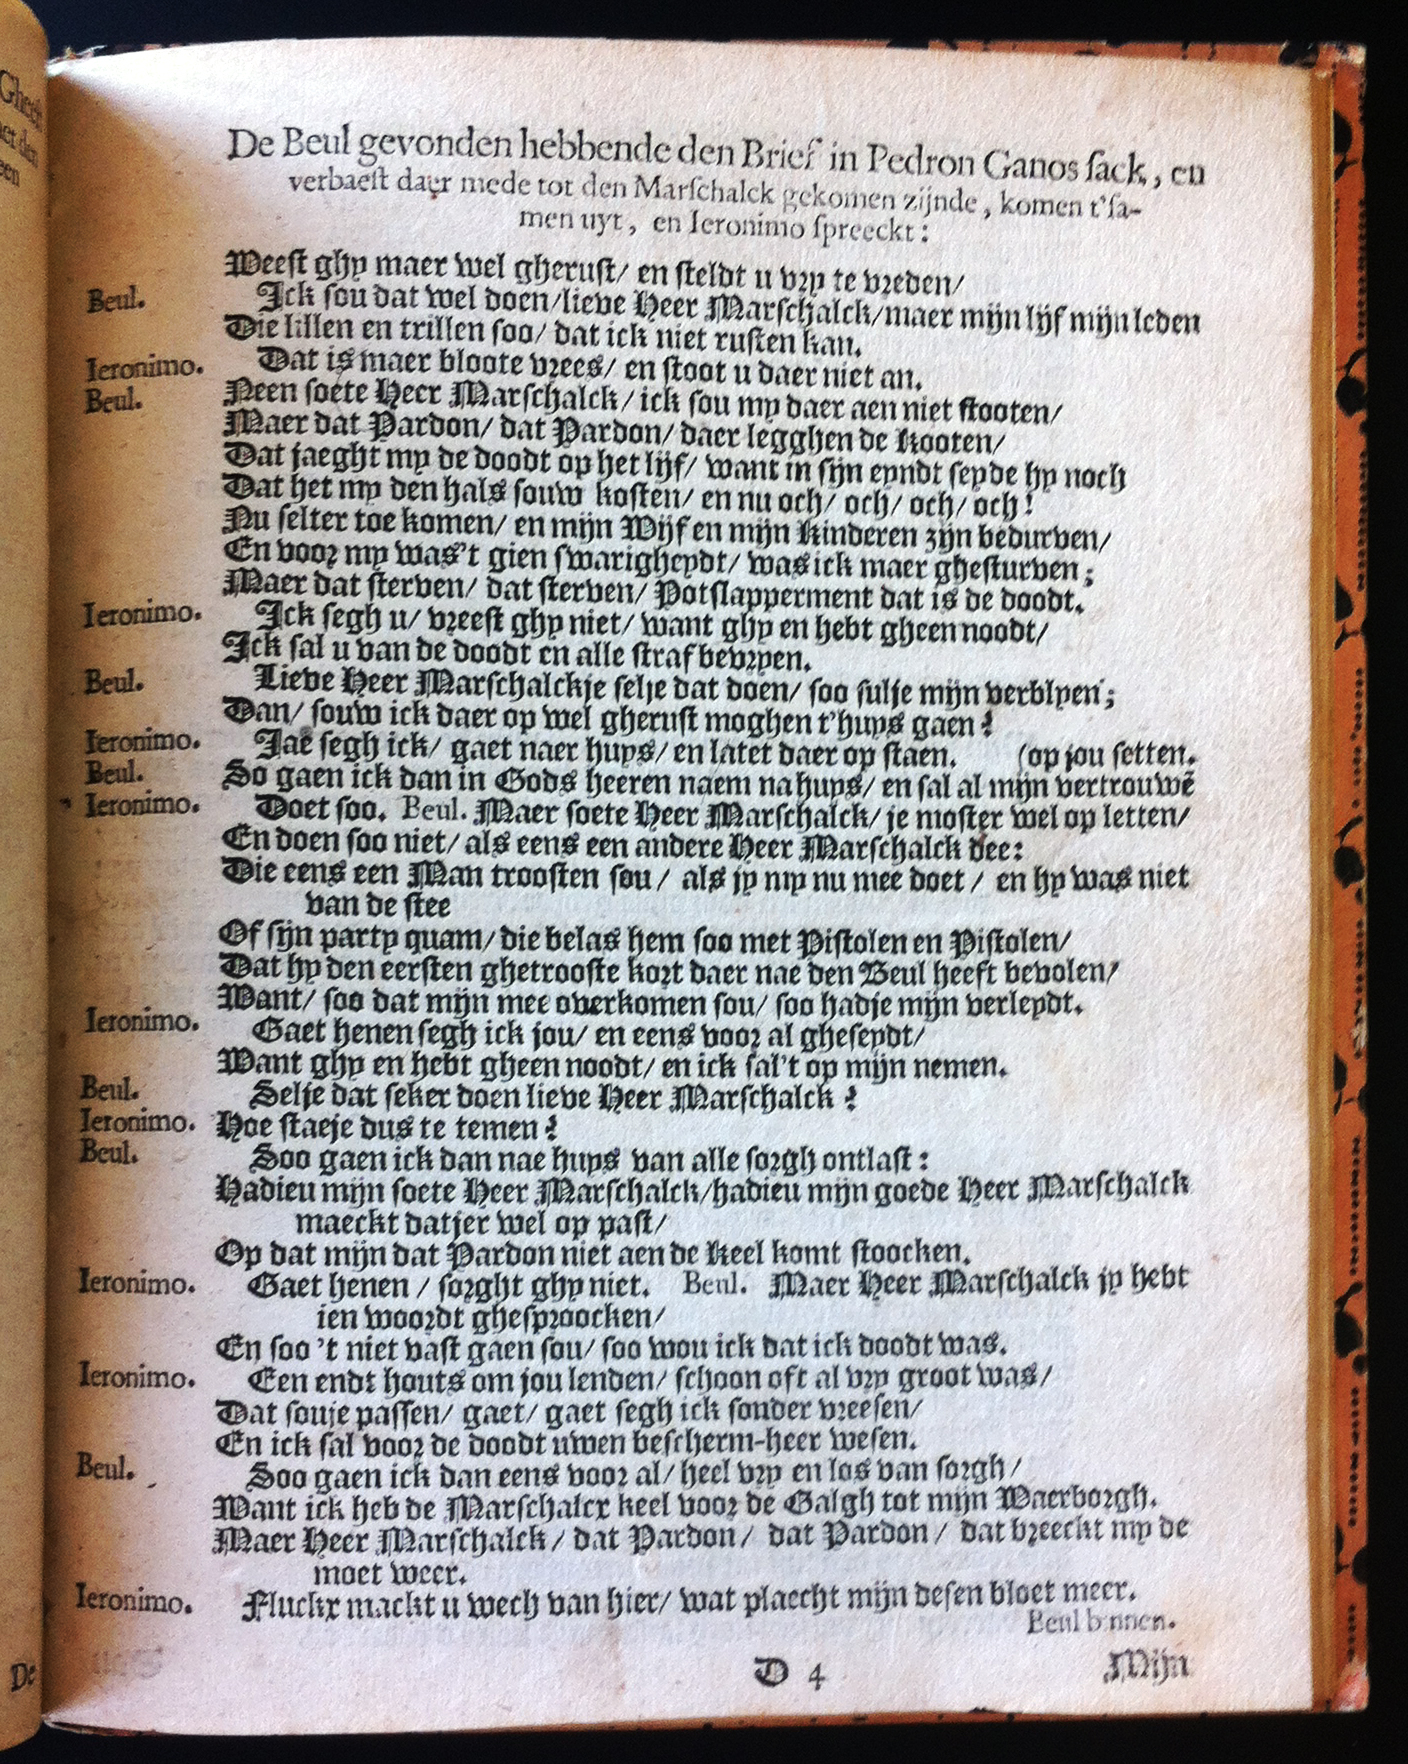 De Beul gevonden hebbende den Brief in Pedron Ganos sack, en
verbaest daer mede tot den Marschalck gekomen zijnde, komen t'sa-
men uyt, en Ieronimo spreeckt:
Weest ghy maer wel gherust/ en steldt u vry te vreden/
Beul. Ick sou dat wel doen/lieve Heer Marschalck/maer mijn lijf mijn leden
Die lillen en trillen soo/ dat ick niet rusten kan.
Ieronimo. Dat is maer bloote vrees/ en stoot u daer niet an.
Beul. Neen soete Heer Marschalck/ ick sou my daer aen niet stooten/
Maer dat Pardon/ dat Pardon/ daer legghen de Kooten/
Dat jaeght my de doodt op het lijf/ want in sijn eyndt seyde hy noch
Dat het my den hals souw kosten/ en nu och/ och/ och/ och!
Nu selter toe komen/ en mijn Wijf en mijn Kinderen zijn bedurven/
En voor my was't gien swarigheydt/ was ick maer ghesturven;
Maer dat sterven/ dat sterven/ Potslapperment dat is de doodt.
Ieronimo. Ick segh u/ vreest ghy niet/ want ghy en hebt gheen noodt/
Ick sal u van de doodt en alle straf bevryen.
Beul. Lieve Heer Marschalckje selje dat doen/ soo sulje mijn verblyen;
Dan/ souw ick daer op wel gherust moghen t'huys gaen?
Ieronimo. Jae segh ick/ gaet naer huys/ en latet daer op staen. (op jou setten.
Beul. So gaen ick dan in Gods heeren naem na huys/ en sal al mijn vertrouwẽ
Ieronimo. Doet soo. Beul. Maer soete Heer Marschalck/ je moster wel op letten/
En doen soo niet/ als eens een andere Heer Marschalck dee:
Die eens een Man troosten sou/ als jy my nu mee doet/ en hy was niet
van de stee
Of sijn party quam/ die belas hem soo met Pistolen en Pistolen/
Dat hy den eersten ghetrooste kort daer nae den Beul heeft bevolen/
Want/ soo dat mijn mee overkomen sou/ soo hadje mijn verleydt.
Ieronimo. Gaet henen segh ick jou/ en eens voor al gheseydt/
Want ghy en hebt gheen noodt/ en ick sal't op mijn nemen.
Beul. Selje dat seker doen lieve Heer Marschalck?
Ieronimo. Hoe staeje dus te temen?
Beul. Soo gaen ick dan nae huys van alle sorgh ontlast:
Hadieu mijn soete Heer Marschalck/hadieu mijn goede Heer Marschalck
maeckt datjer wel op past/
Op dat mijn dat Pardon niet aen de Keel komt stoocken.
Ieronimo. Gaet henen/ sorght ghy niet. Beul. Maer Heer Marschalck jy hebt
ien woordt ghesproocken/
En soo 't niet vast gaen sou/ soo wou ick dat ick doodt was.
Ieronimo. Een endt houts om jou lenden/ schoon oft al vry groot was/
Dat souje passen/ gaet/ gaet segh ick sonder vreesen/
En ick sal voor de doodt uwen bescherm-heer wesen.
Beul. Soo gaen ick dan eens voor al/ heel vry en los van sorgh/
Want ick heb de Marschalcx keel voor de Galgh tot mijn Waerborgh.
Maer Heer Marschalck/ dat Pardon/ dat Pardon/ dat breeckt my de
moet weer.
Ieronimo. Fluckx mackt u wech van hier/ wat plaecht mijn desen bloet meer.
Beul binnen.
D 4 Mijn